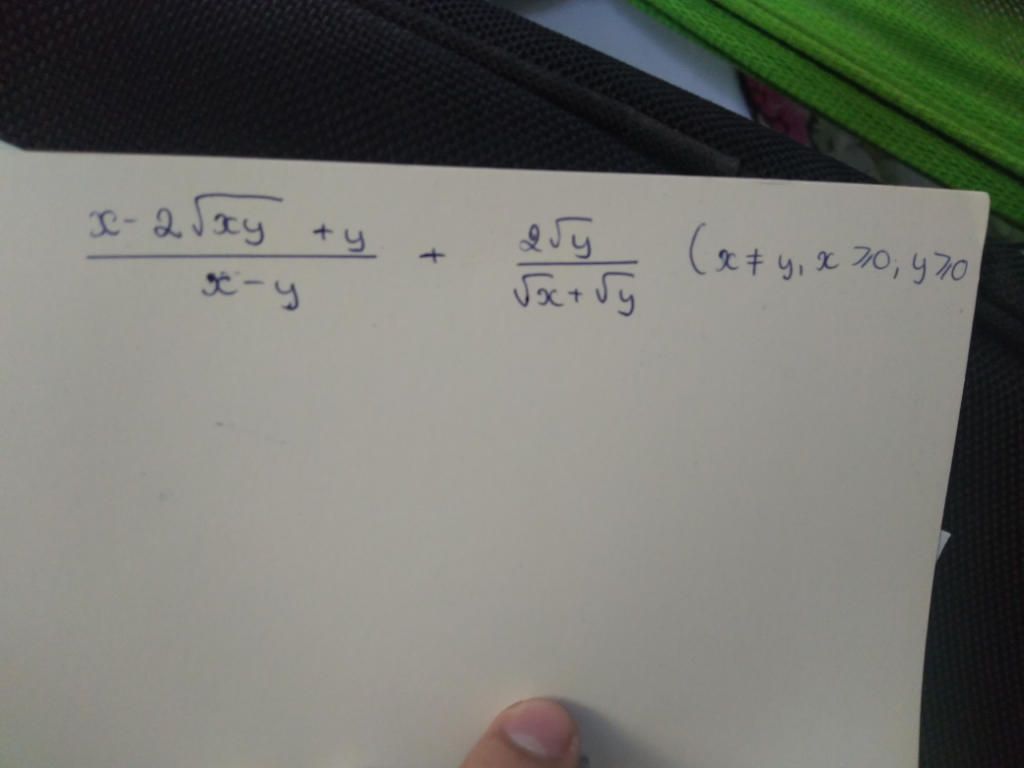 x - 2√xy + y / x - y + 2√y / √x + √y (x ≠ y, x ⩾ 0; y ⩾ 0